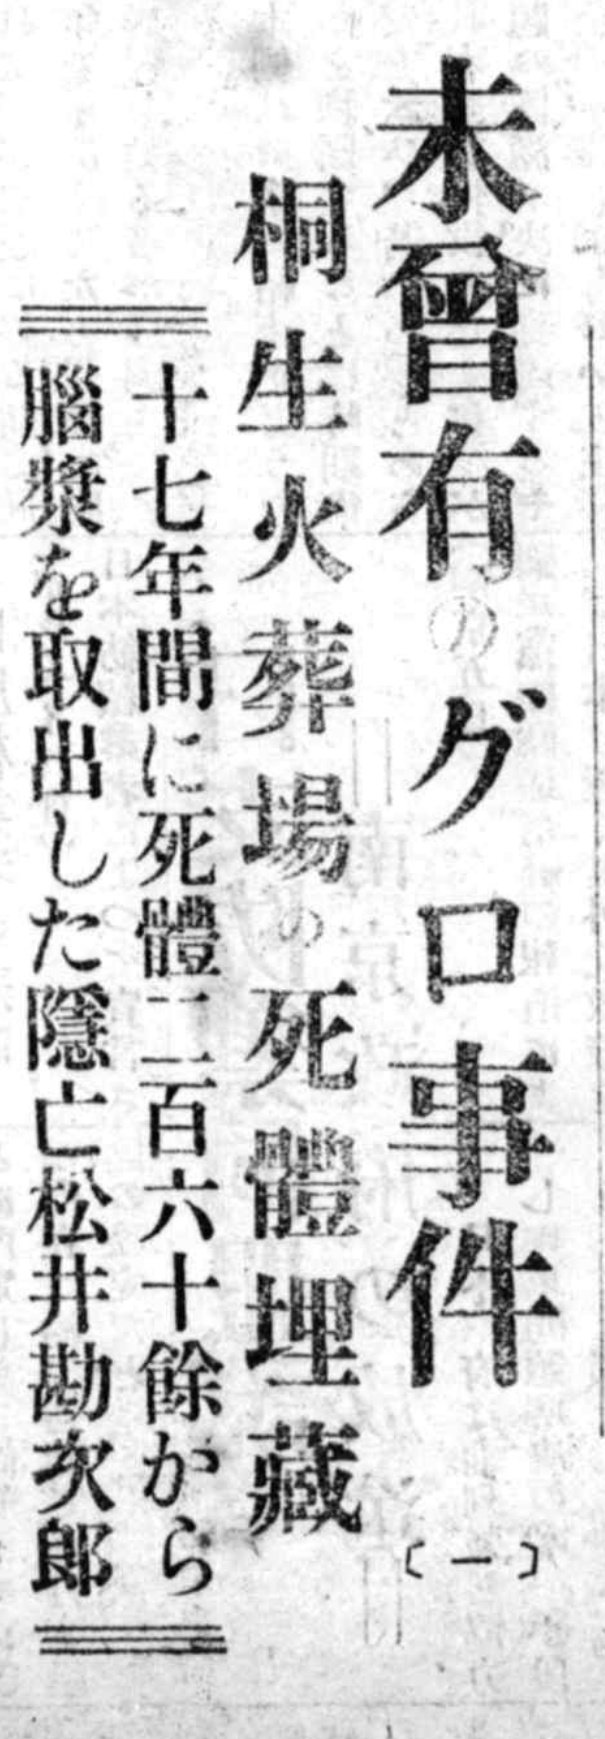 未曾有のグロ事件 〔一〕
桐生火葬場の死體埋藏
十七年間に死體二百六十餘から
腦漿を取出した隱亡松井勘次郎